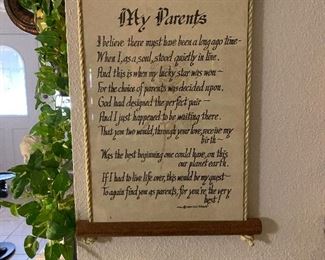 My Parents
I believe there must have been a long ago time-
When I, as a soul, stood quietly in line.
And this is when my lucky star was won-
For the choice of parents was decided upon,
God had designed the perfect pair-
And I just happened to be waiting there.
That you two would, through your love, receive my
birth-
Was the best beginning one could have, on this
our planet earth.
If I had to live life over, this would be my quest-
To again find you as parents, for you're the very
best!